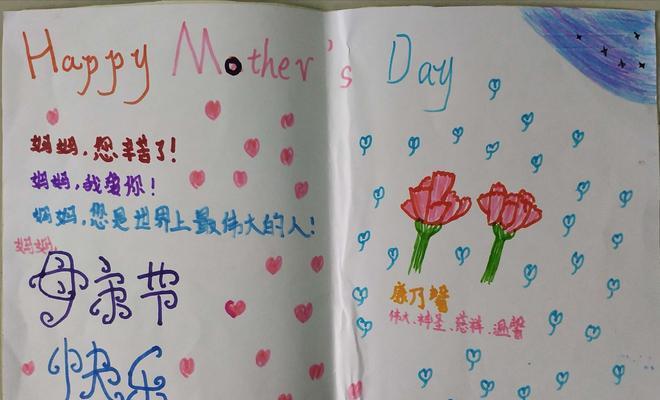 Happy Mother's Day
妈妈,您辛苦了!
妈妈,我爱你!
妈妈,您是世界上最伟大的人!
妈妈,
母亲节
快乐
康乃馨
伟大、神圣、慈祥、温馨